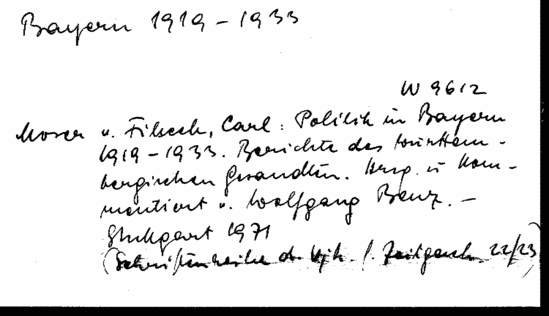 Bayern 1919-1933
W 9612
Moser v. Filseck, Carl: Politik in Bayern
1919-1933. Berichte des württem-
bergischen Gesandten. Hrsg. u. kom-
mentiert v. Wolfgang Benz. -
Stuttgart 1971
(Schriftenreihe d. Vjh. f. Zeitgesch. 22/23)